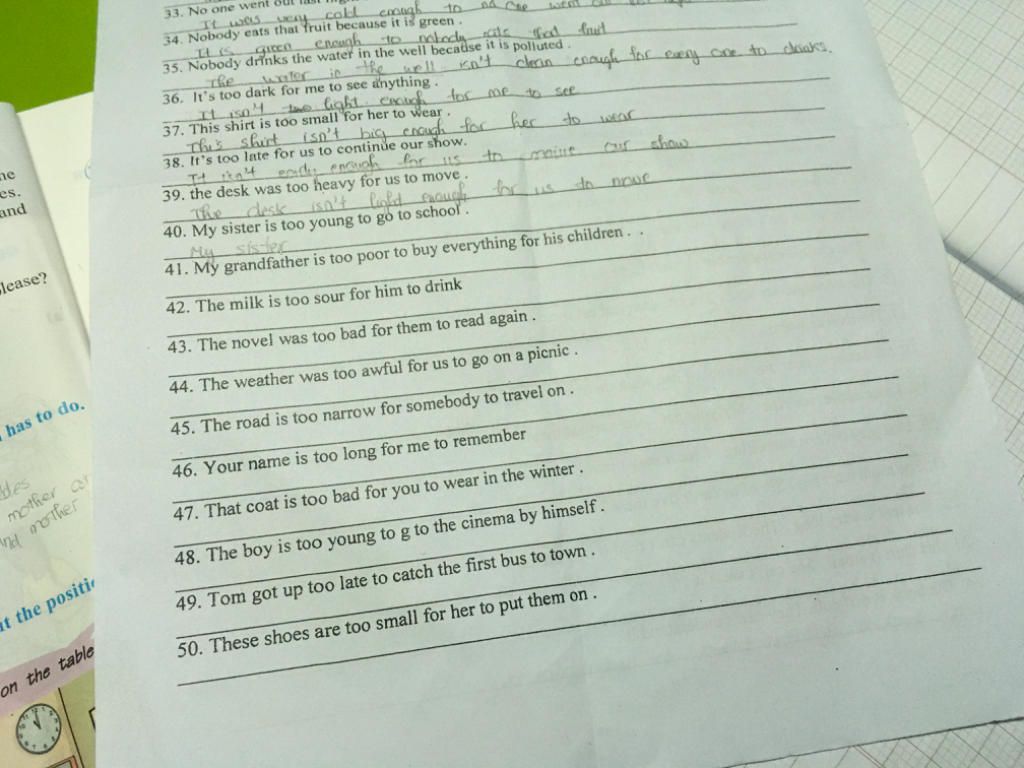 33. No one went out last
It was very cold enough to no one went out
34. Nobody eats that fruit because it is green .
It is green enough to nobody eats that fruit
35. Nobody drinks the water in the well because it is polluted .
The water in the well isn't clean enough for every one to drinks.
36. It's too dark for me to see anything .
It isn't light enough for me to see
37. This shirt is too small for her to wear .
This shirt isn't big enough for her to wear
38. It's too late for us to continue our show.
It isn't early enough for us to our show
39. the desk was too heavy for us to move .
The desk isn't light enough for us to move
40. My sister is too young to go to school .
My sister
41. My grandfather is too poor to buy everything for his children . .
42. The milk is too sour for him to drink
43. The novel was too bad for them to read again .
44. The weather was too awful for us to go on a picnic .
45. The road is too narrow for somebody to travel on .
46. Your name is too long for me to remember
47. That coat is too bad for you to wear in the winter .
48. The boy is too young to g to the cinema by himself .
49. Tom got up too late to catch the first bus to town .
50. These shoes are too small for her to put them on .
es.
and
lease?
has to do.
mother
and mother
t the positi
on the table